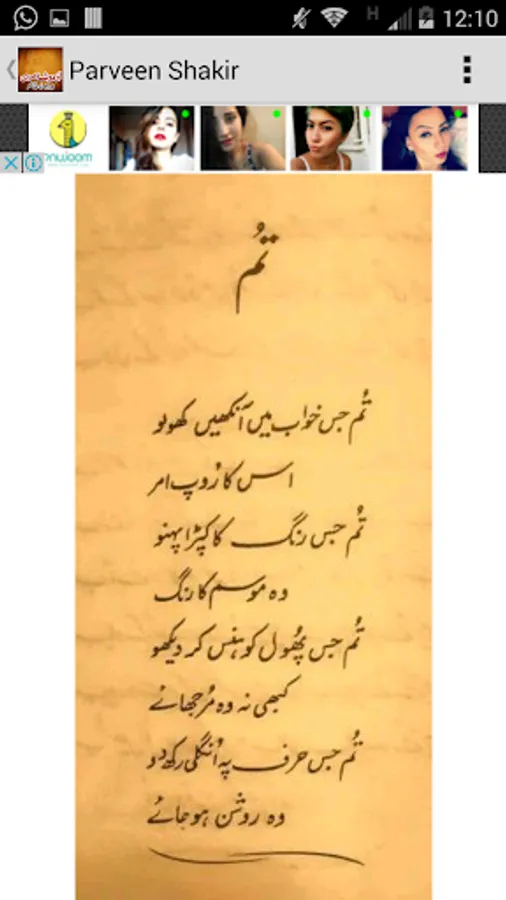 H
12:10
Parveen Shakir
تُم
تُم جس خواب میں آنکھیں کھولو
اس کا رُوپ امر
تُم جس رنگ کا کپڑا پہنو
وہ موسم کا رنگ
تُم جس پھُول کو ہنس کر دیکھو
کبھی نہ وہ مُرجھائے
تُم جس حرف پہ اُنگلی رکھ دو
وہ روشن ہو جائے